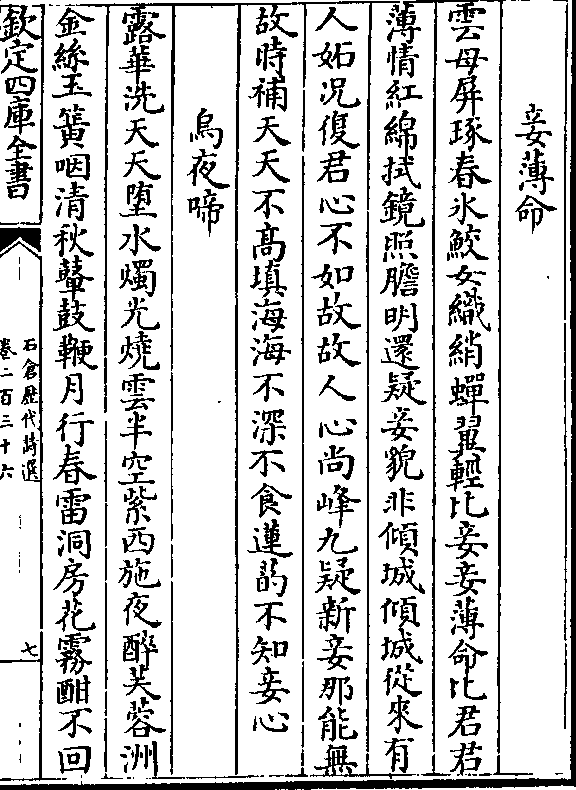 妾薄命
雲母屏琢春氷鮫女織綃蟬翼輕比妾妾薄命比君君
薄情紅綿拭鏡照膽明還疑妾貌非傾城傾城從來有
人妬况復君心不如故故人心尚峰九疑新妾那能無
故時補天天不髙填海海不深不食蓮菂不知妾心
烏夜啼
露華洗天天墮水燭光燒雲半空紫西施夜醉芙蓉洲
金絲玉簧咽清秋鼙鼓鞭月行春雷洞房花霧酣不回
欽定四庫全書
石倉歴代詩選
卷二百三十六
七